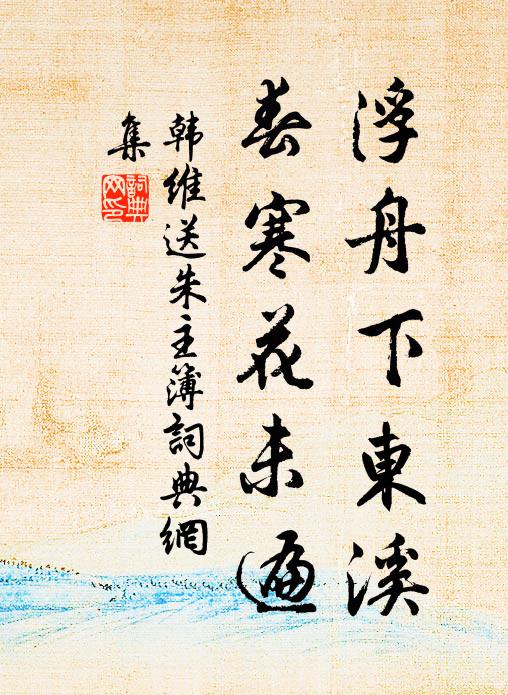 浮舟下東溪
春寒花未遍
韩維送朱主簿詞典網
集
詞典網印